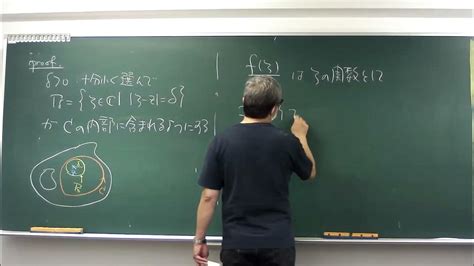 proof.
δ>0 十分小く選んで
Γ = {ζ∈ℂ | |ζ-z|=δ}
が Cの内部に含まれるようにする
f(ζ) は ζの関数として